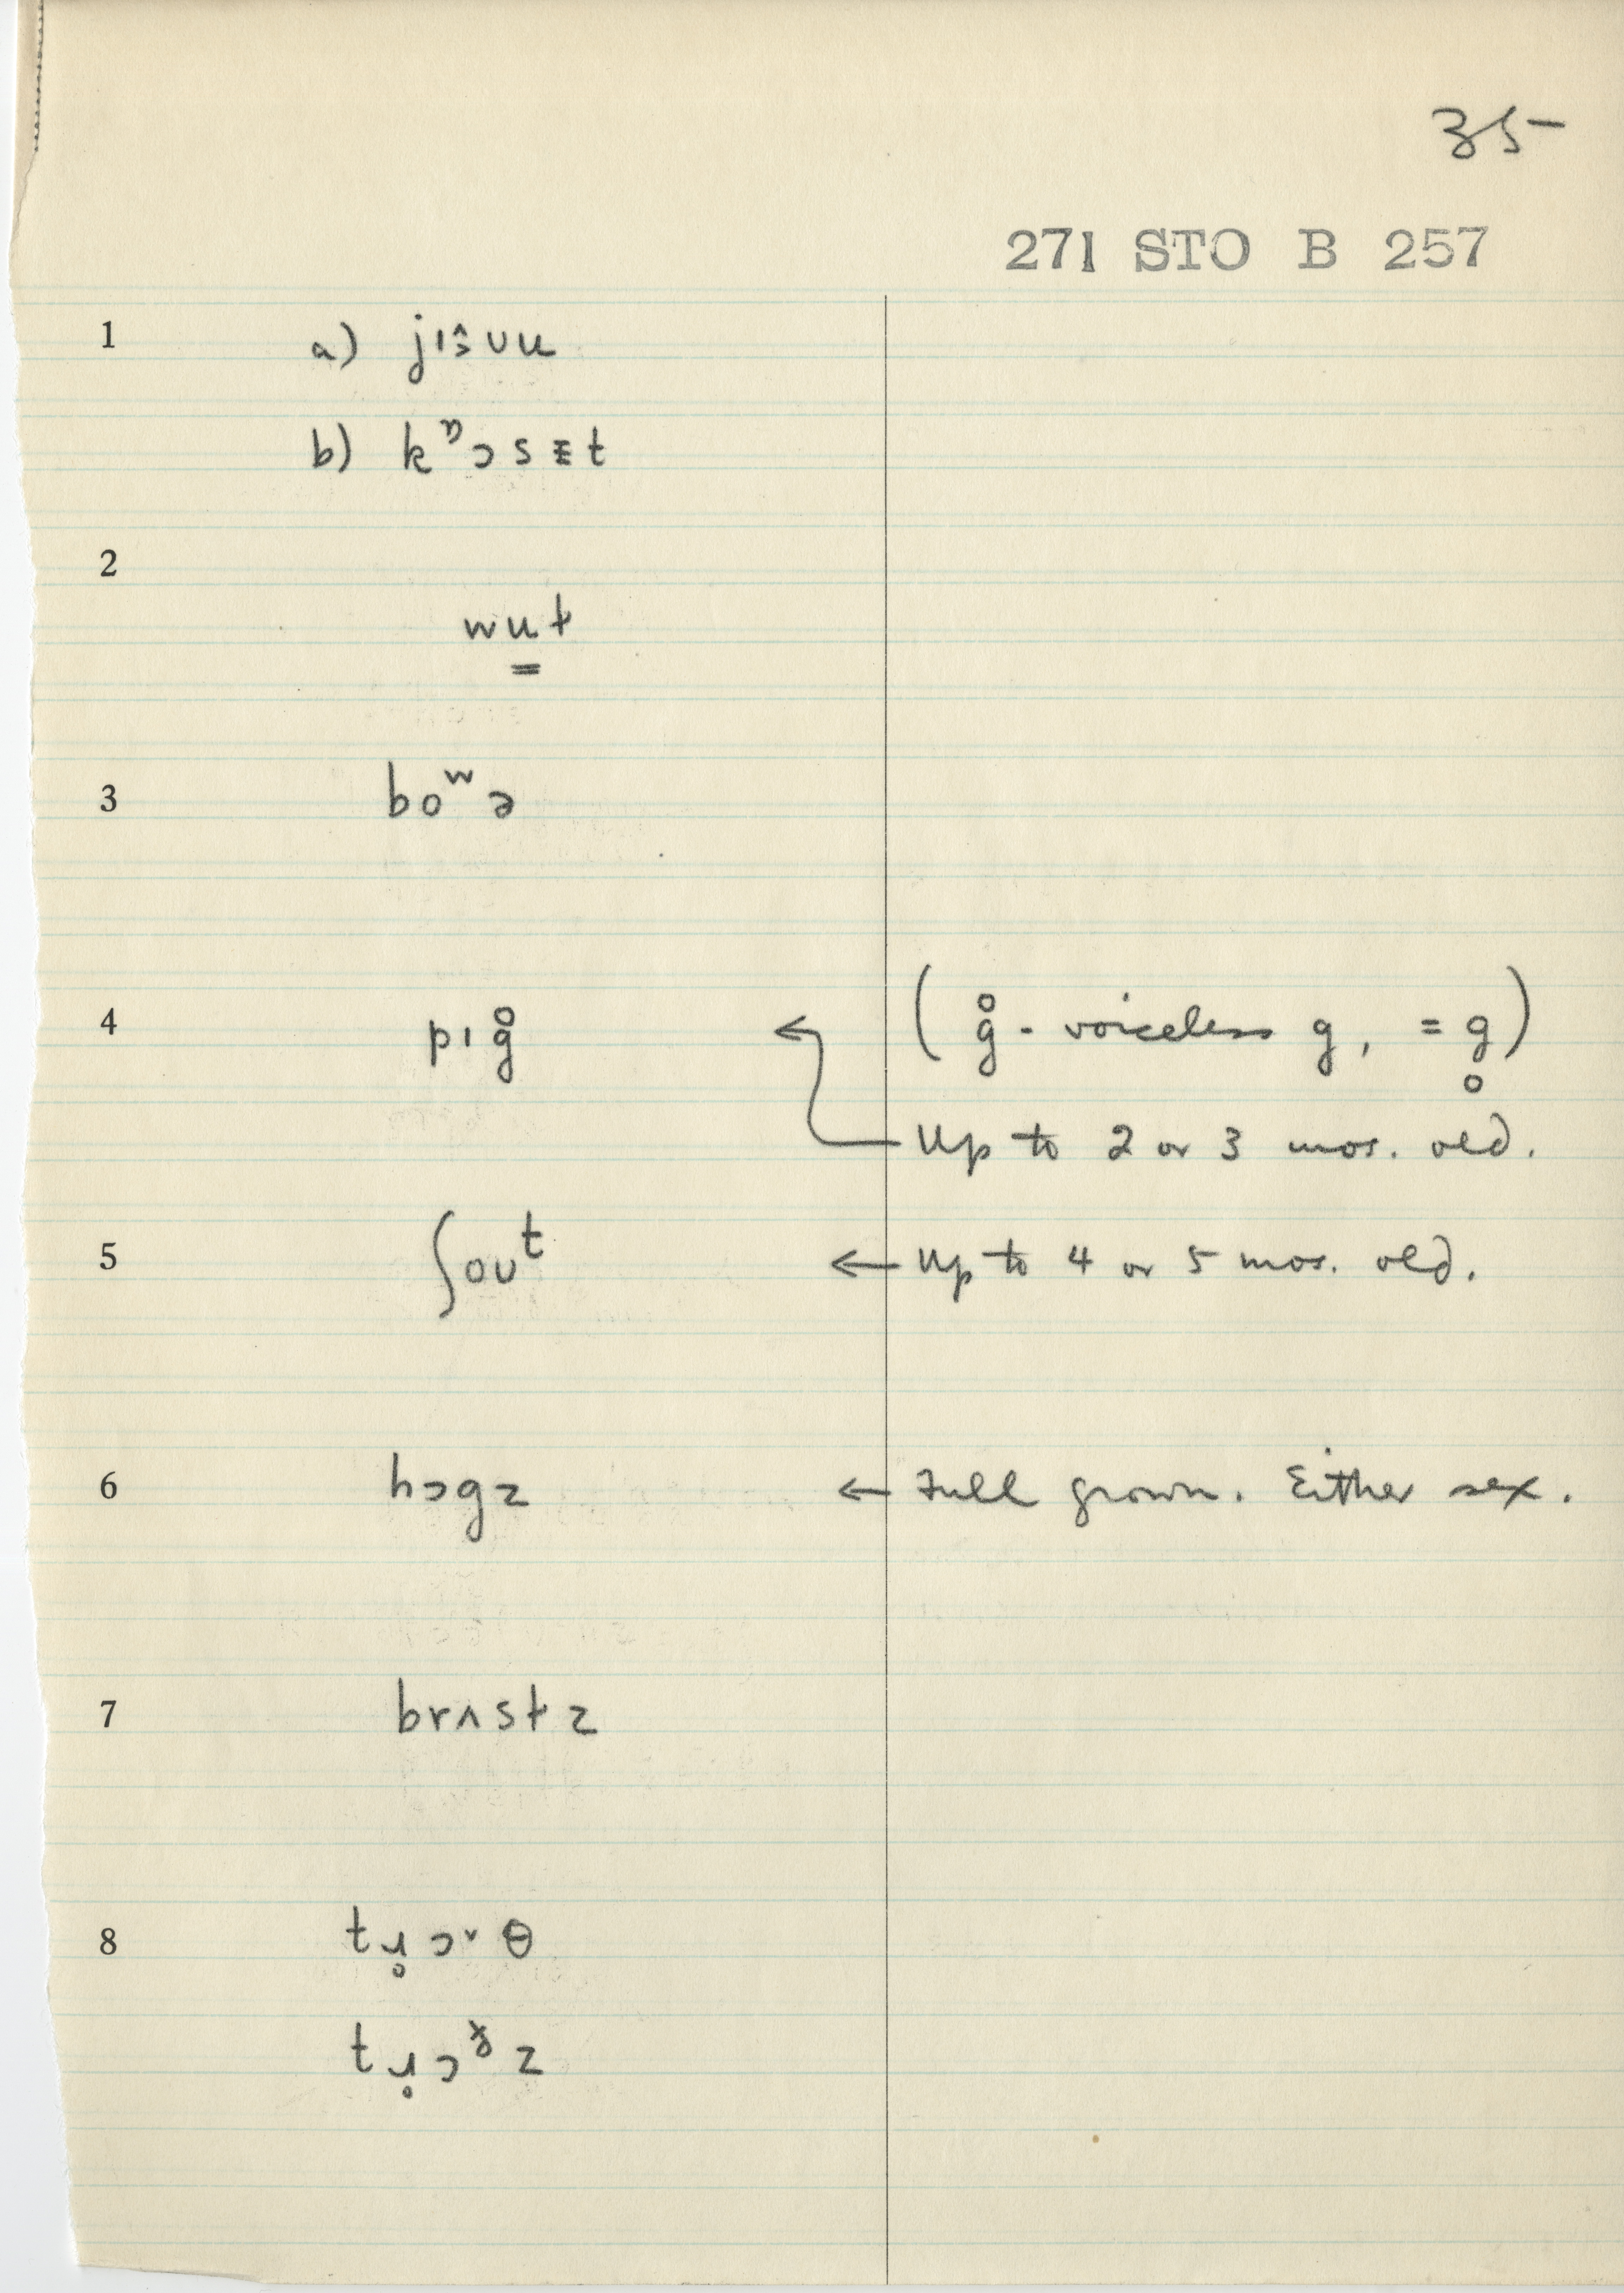 35
271 STO B 257
1 a) jɪɜ̂ʊu
b) kᵑɔsᵻt
2
wu̳t
3 boʷə
4 pɪg̊ ← ( g̊ - voiceless g, = g̥ )
Up to 2 or 3 mos. old.
5 ʃoʊᵗ ← Up to 4 or 5 mos. old.
6 hɔgz ← Full grown. Either sex.
7 brʌstz
8 tɹ̥ɔ˅θ
tɹ̥ɔ z